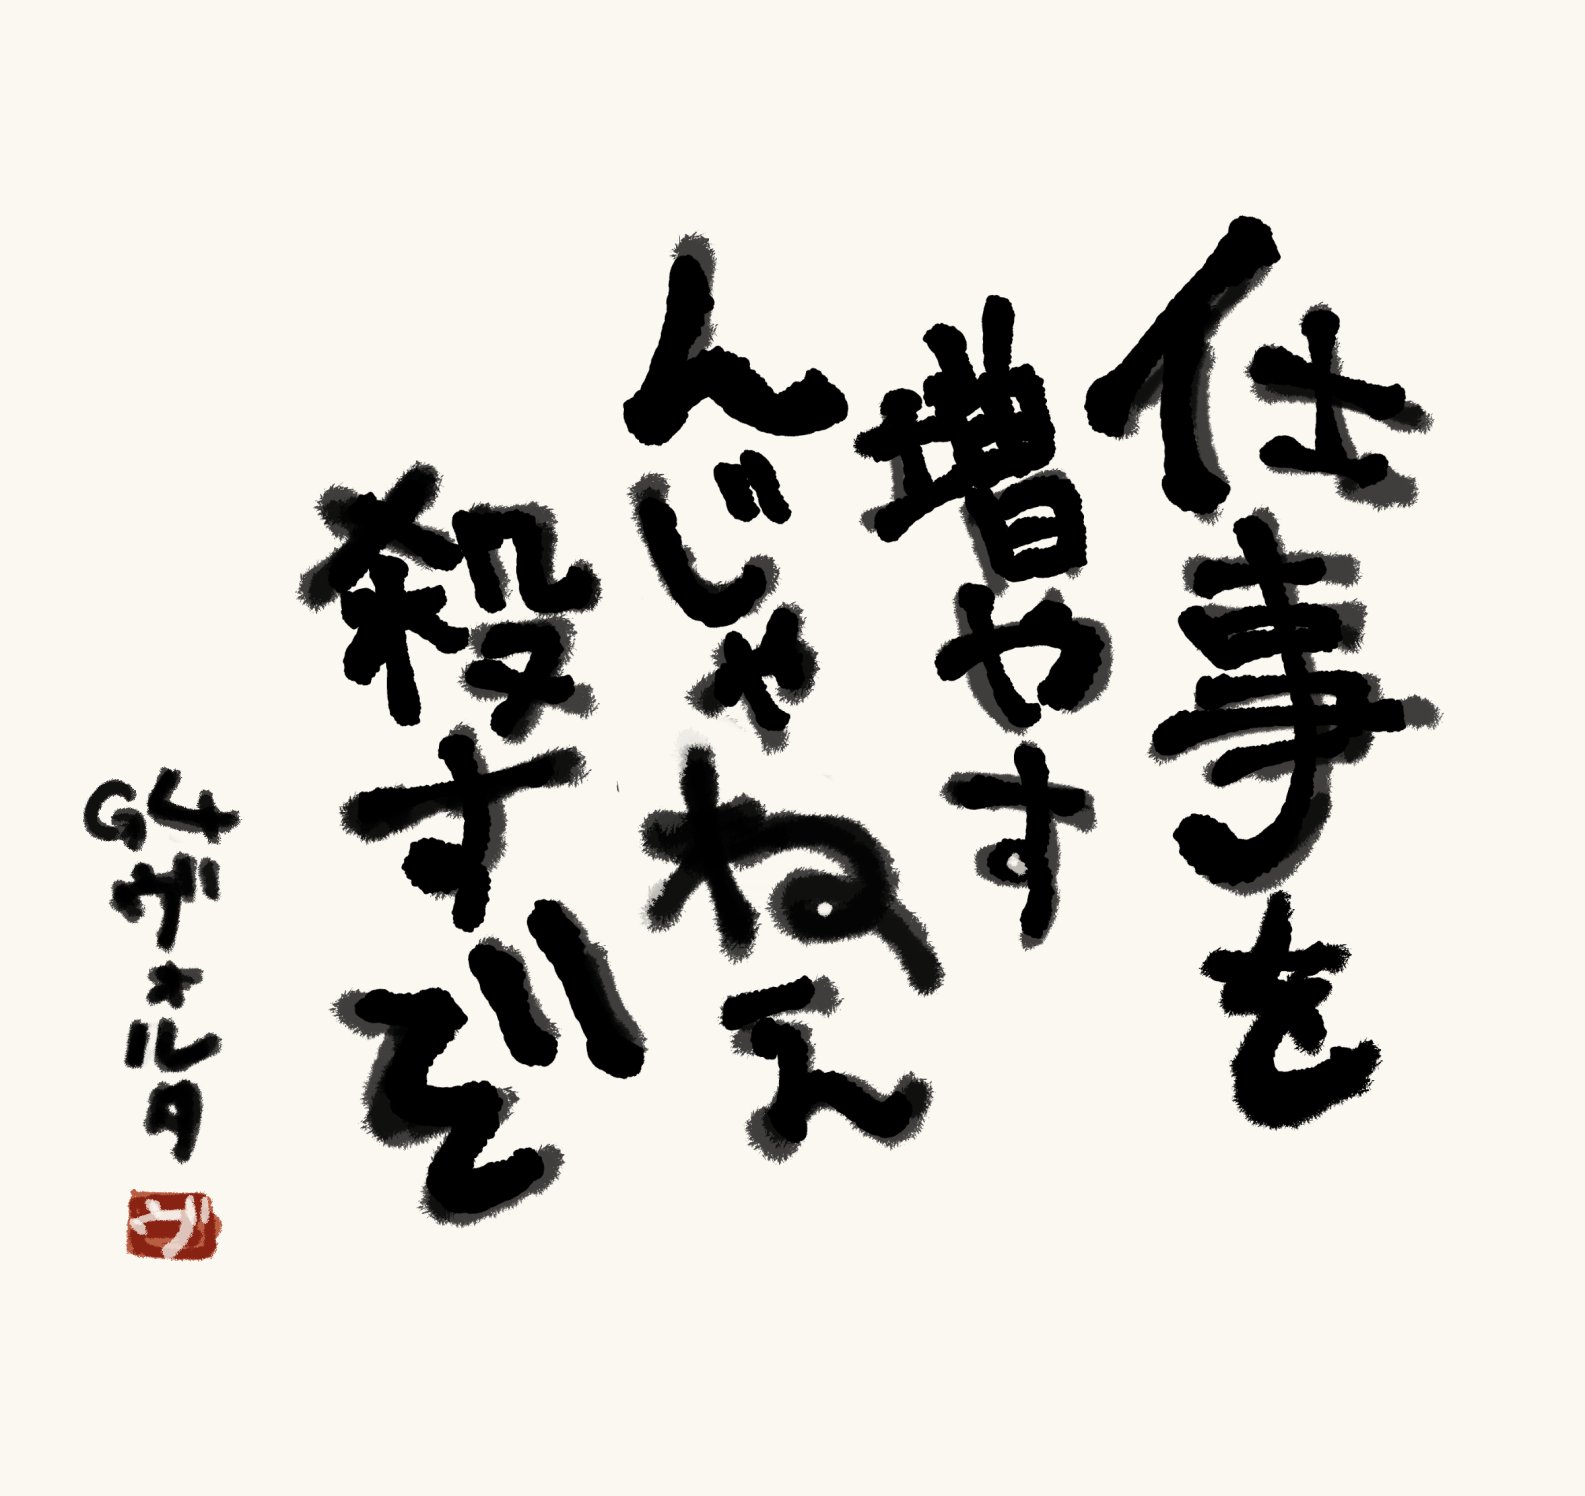 仕事を
増やす
んじゃねえ
殺すぞ
ヴォルタ
ヴ